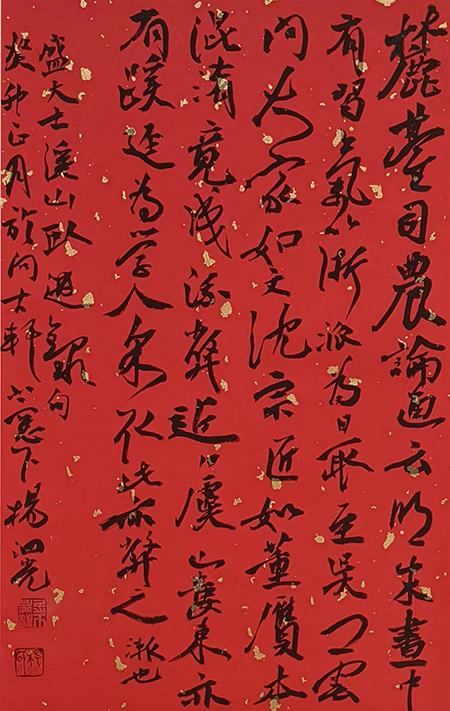 麓臺司農論画云明末畫中
有習氣浙派為最至吳門雲
間大家如文沈宗匠如董贋本
混淆竟成流弊近日虞山婁東亦
有蹊逕為學人采取此亦弊之漸也
盛大士溪山臥遊錄句
癸卯正月於問古軒窓下楊